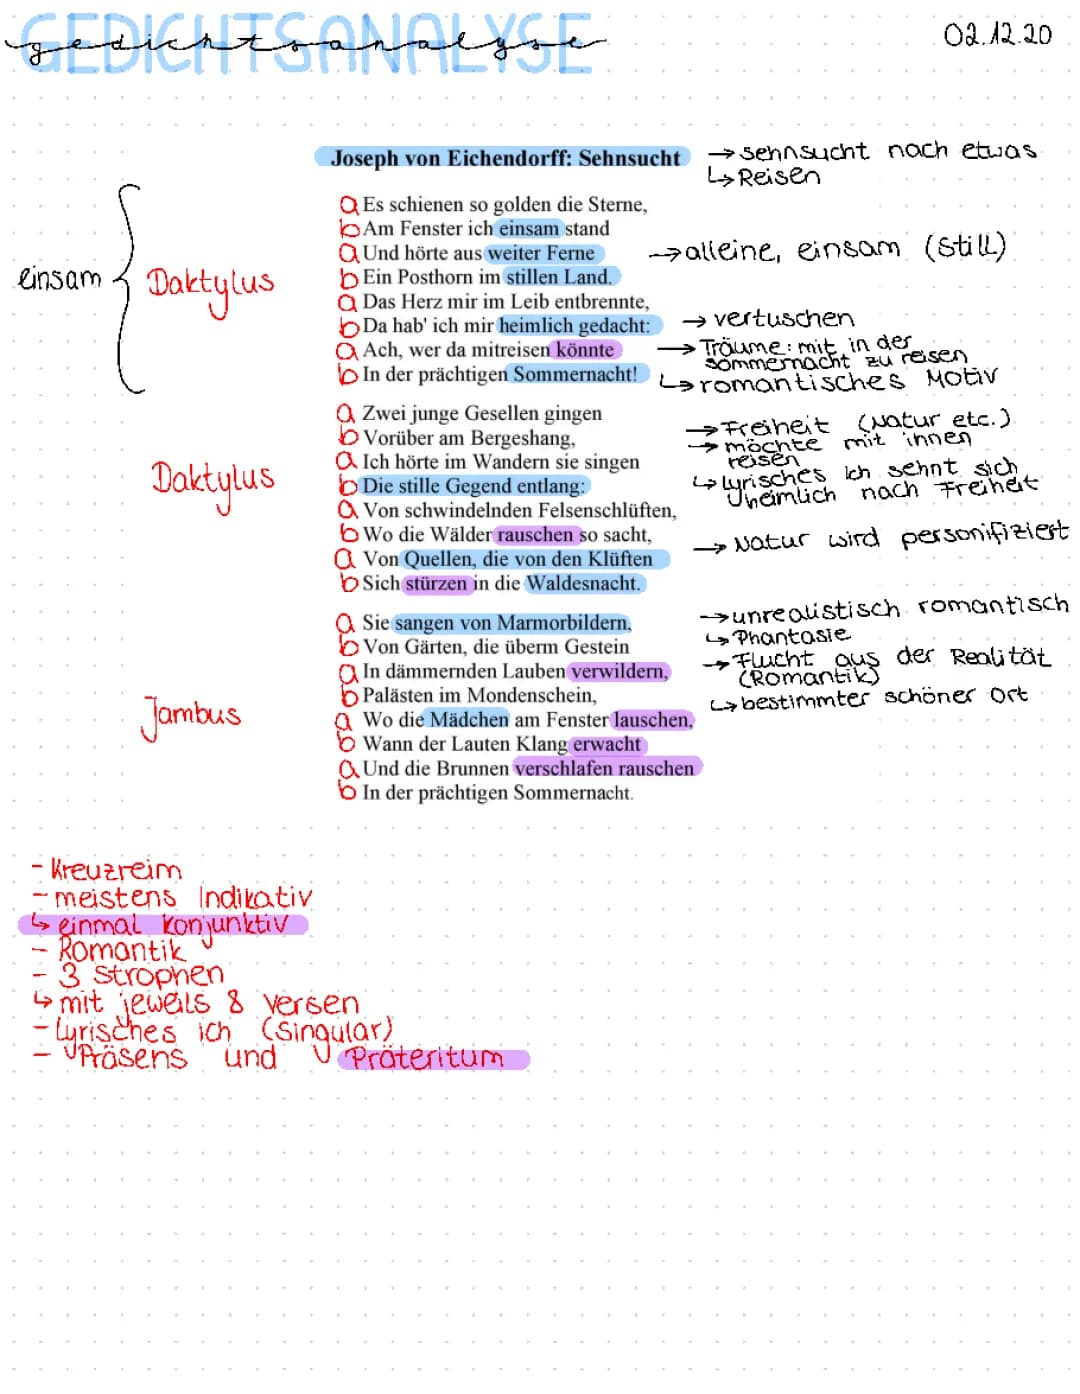 GEDICHTSANALYSE
gedichtsanalyse
02.12.20
Joseph von Eichendorff: Sehnsucht
→ sehnsucht nach etwas
↳ Reisen
einsam
Daktylus
a Es schienen so golden die Sterne,
b Am Fenster ich einsam stand
a Und hörte aus weiter Ferne
→ alleine, einsam (still)
b Ein Posthorn im stillen Land.
a Das Herz mir im Leib entbrennte,
b Da hab' ich mir heimlich gedacht:
→ vertuschen
a Ach, wer da mitreisen könnte
→ Träume: mit in der
sommernacht zu reisen
b In der prächtigen Sommernacht!
↳ romantisches Motiv
Daktylus
a Zwei junge Gesellen gingen
→ Freiheit (Natur etc.)
b Vorüber am Bergeshang,
→ möchte mit ihnen
reisen
a Ich hörte im Wandern sie singen
↳ lyrisches Ich sehnt sich
b Die stille Gegend entlang:
unheimlich nach Freiheit
a Von schwindelnden Felsenschlüften,
b Wo die Wälder rauschen so sacht,
→ Natur wird personifiziert
a Von Quellen, die von den Klüften
b Sich stürzen in die Waldesnacht.
Jambus
a Sie sangen von Marmorbildern,
→ unrealistisch romantisch
b Von Gärten, die überm Gestein
↳ Phantasie
a In dämmernden Lauben verwildern,
→ Flucht aus der Realität
(Romantik)
b Palästen im Mondenschein,
↳ bestimmter schöner Ort
a Wo die Mädchen am Fenster lauschen,
b Wann der Lauten Klang erwacht
a Und die Brunnen verschlafen rauschen
b In der prächtigen Sommernacht.
- Kreuzreim
- meistens Indikativ
↳ einmal Konjunktiv
- Romantik
- 3 Strophen
↳ mit jeweils 8 Versen
- Lyrisches ich (Singular)
- Präsens und Präteritum